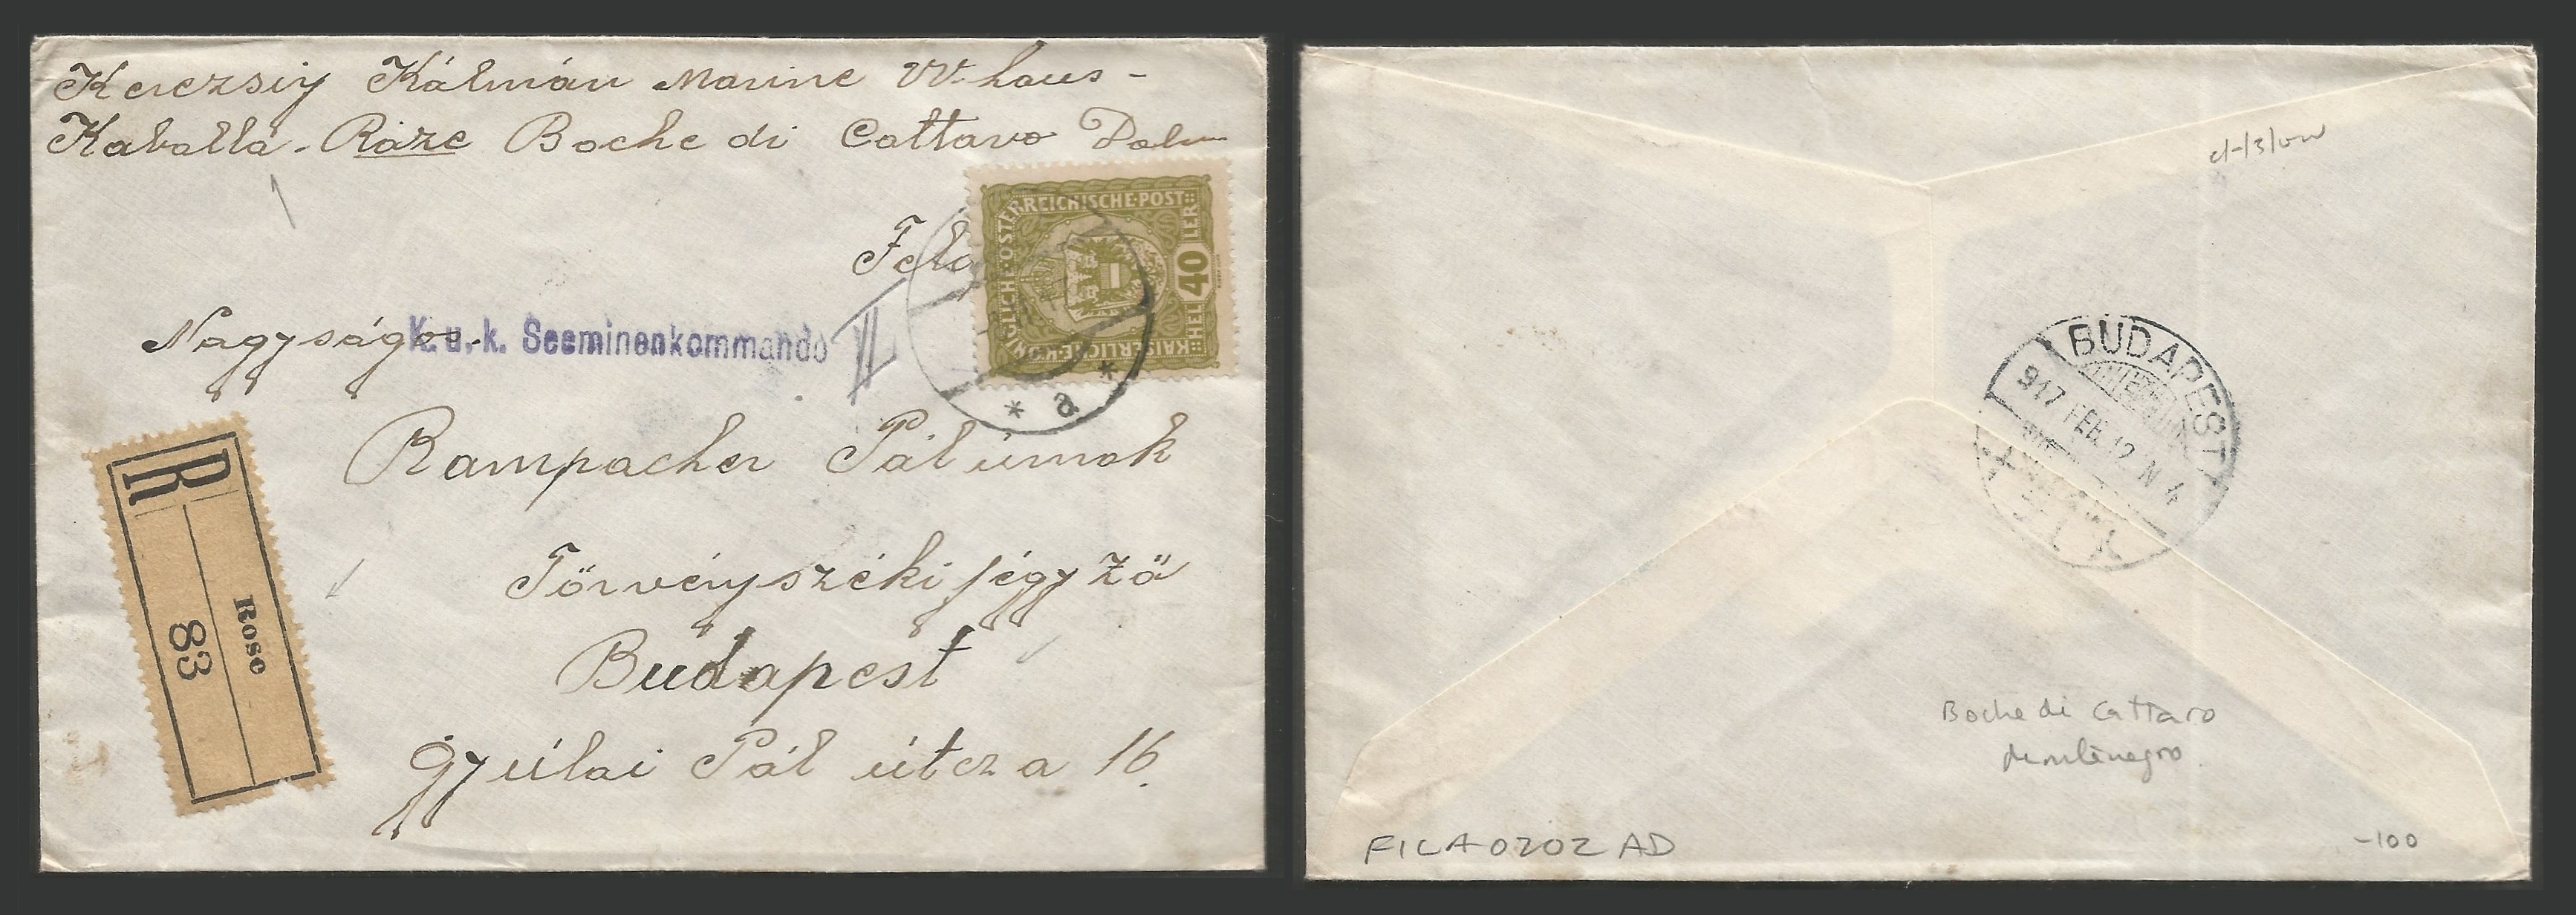 Kerezsiy Kálmán Marine W. haus-
Kaballa. Róze Boche di Cattavo Dalm
KAISERLICHE·KÖNIGLICHE·ÖSTERREICHISCHE·POST
HELLER 40
* a *
Nagyságos
K. u. k. Seeminenkommando
II
Rampacher Pál úrnak
Törvényszéki jégyző
Budapest
Gyúlai Pál útcza 16.
R
Rose
83
BUDAPEST
917 FEB. 12 N 4
Boche di Cattaro
Montenegro
FILA0202 AD
-100